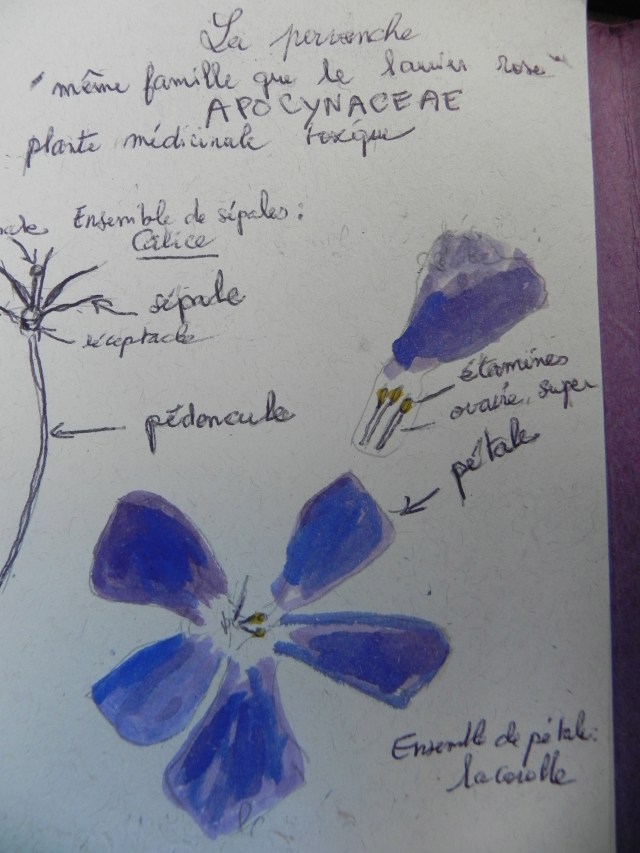 La pervenche
"même famille que le laurier rose"
APOCYNACEAE
plante médicinale toxique
Ensemble de sépales :
Calice
sépale
réceptacle
pédoncule
étamines
ovaire super
pétale
Ensemble de pétale :
la corolle